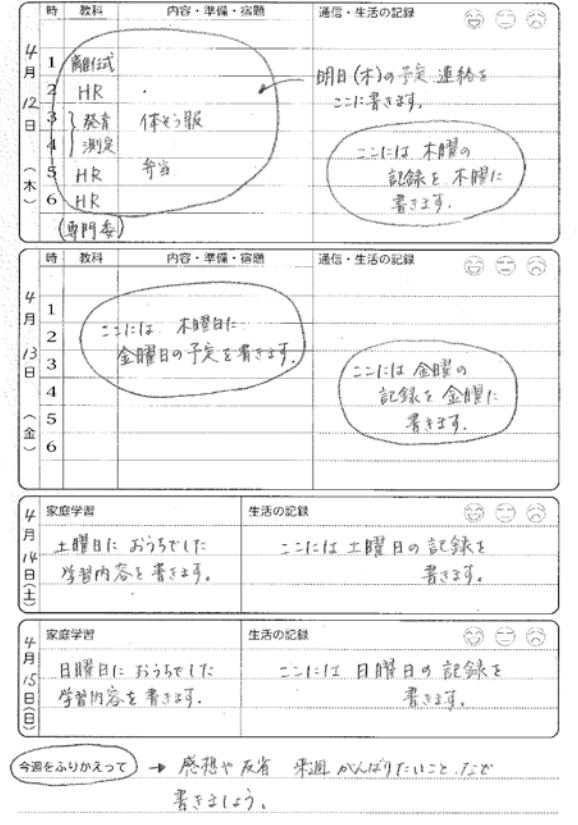 時 教科 内容・準備・宿題 通信・生活の記録
4月12日(木)
1 離任式
2 HR
3 発育 体そう服
4 測定
5 HR 弁当
6 HR
(専門委)
明日(木)の予定 連絡を
ここに書きます。
ここには 木曜の
記録を 木曜に
書きます。
時 教科 内容・準備・宿題 通信・生活の記録
4月13日(金)
1
2
3
4
5
6
ここには 木曜日に
金曜日の予定を書きます。
ここには 金曜の
記録を 金曜に
書きます。
4月14日(土)
家庭学習 生活の記録
土曜日に おうちでした
学習内容を書きます。
ここには 土曜日の記録を
書きます。
4月15日(日)
家庭学習 生活の記録
日曜日に おうちでした
学習内容を書きます。
ここには 日曜日の記録を
書きます。
今週をふりかえって → 感想や反省 来週 がんばりたいこと など
書きましょう。